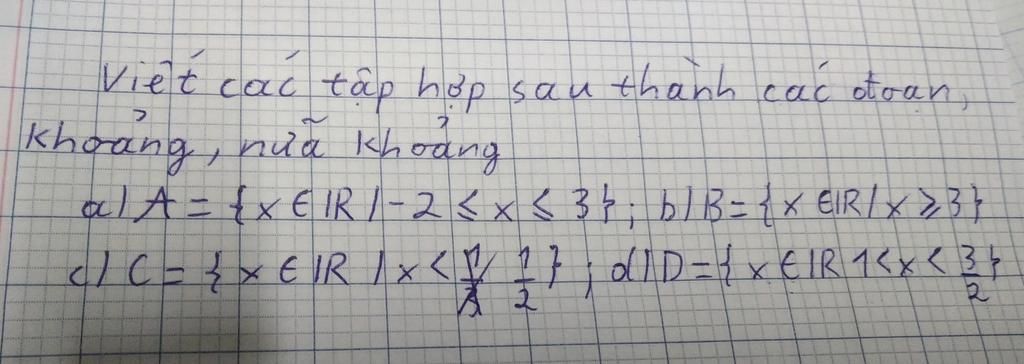 Viết các tập hợp sau thành các đoạn,
khoảng, nữa khoảng
a) A = {x ∈ ℝ | -2 ≤ x ≤ 3}; b) B = {x ∈ ℝ | x ≥ 3}
c) C = {x ∈ ℝ | x < 1/2}; d) D = {x ∈ ℝ 1 < x < 3/2}